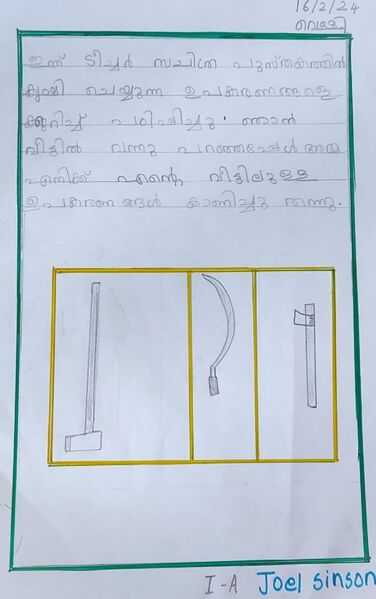 16/2/24
വെള്ളി
ഇന്ന് ടീച്ചർ സചിത്ര പുസ്തകത്തിൽ
കൃഷി ചെയ്യുന്ന ഉപകരണങ്ങളെ
ക്കുറിച്ച് പഠിപ്പിച്ചു. ഞാൻ
വീട്ടിൽ വന്നു പറഞ്ഞപ്പോൾ അമ്മ
എനിക്ക് എന്റെ വീട്ടിലുള്ള
ഉപകരണങ്ങൾ കാണിച്ചു തന്നു.
I-A Joel sinson